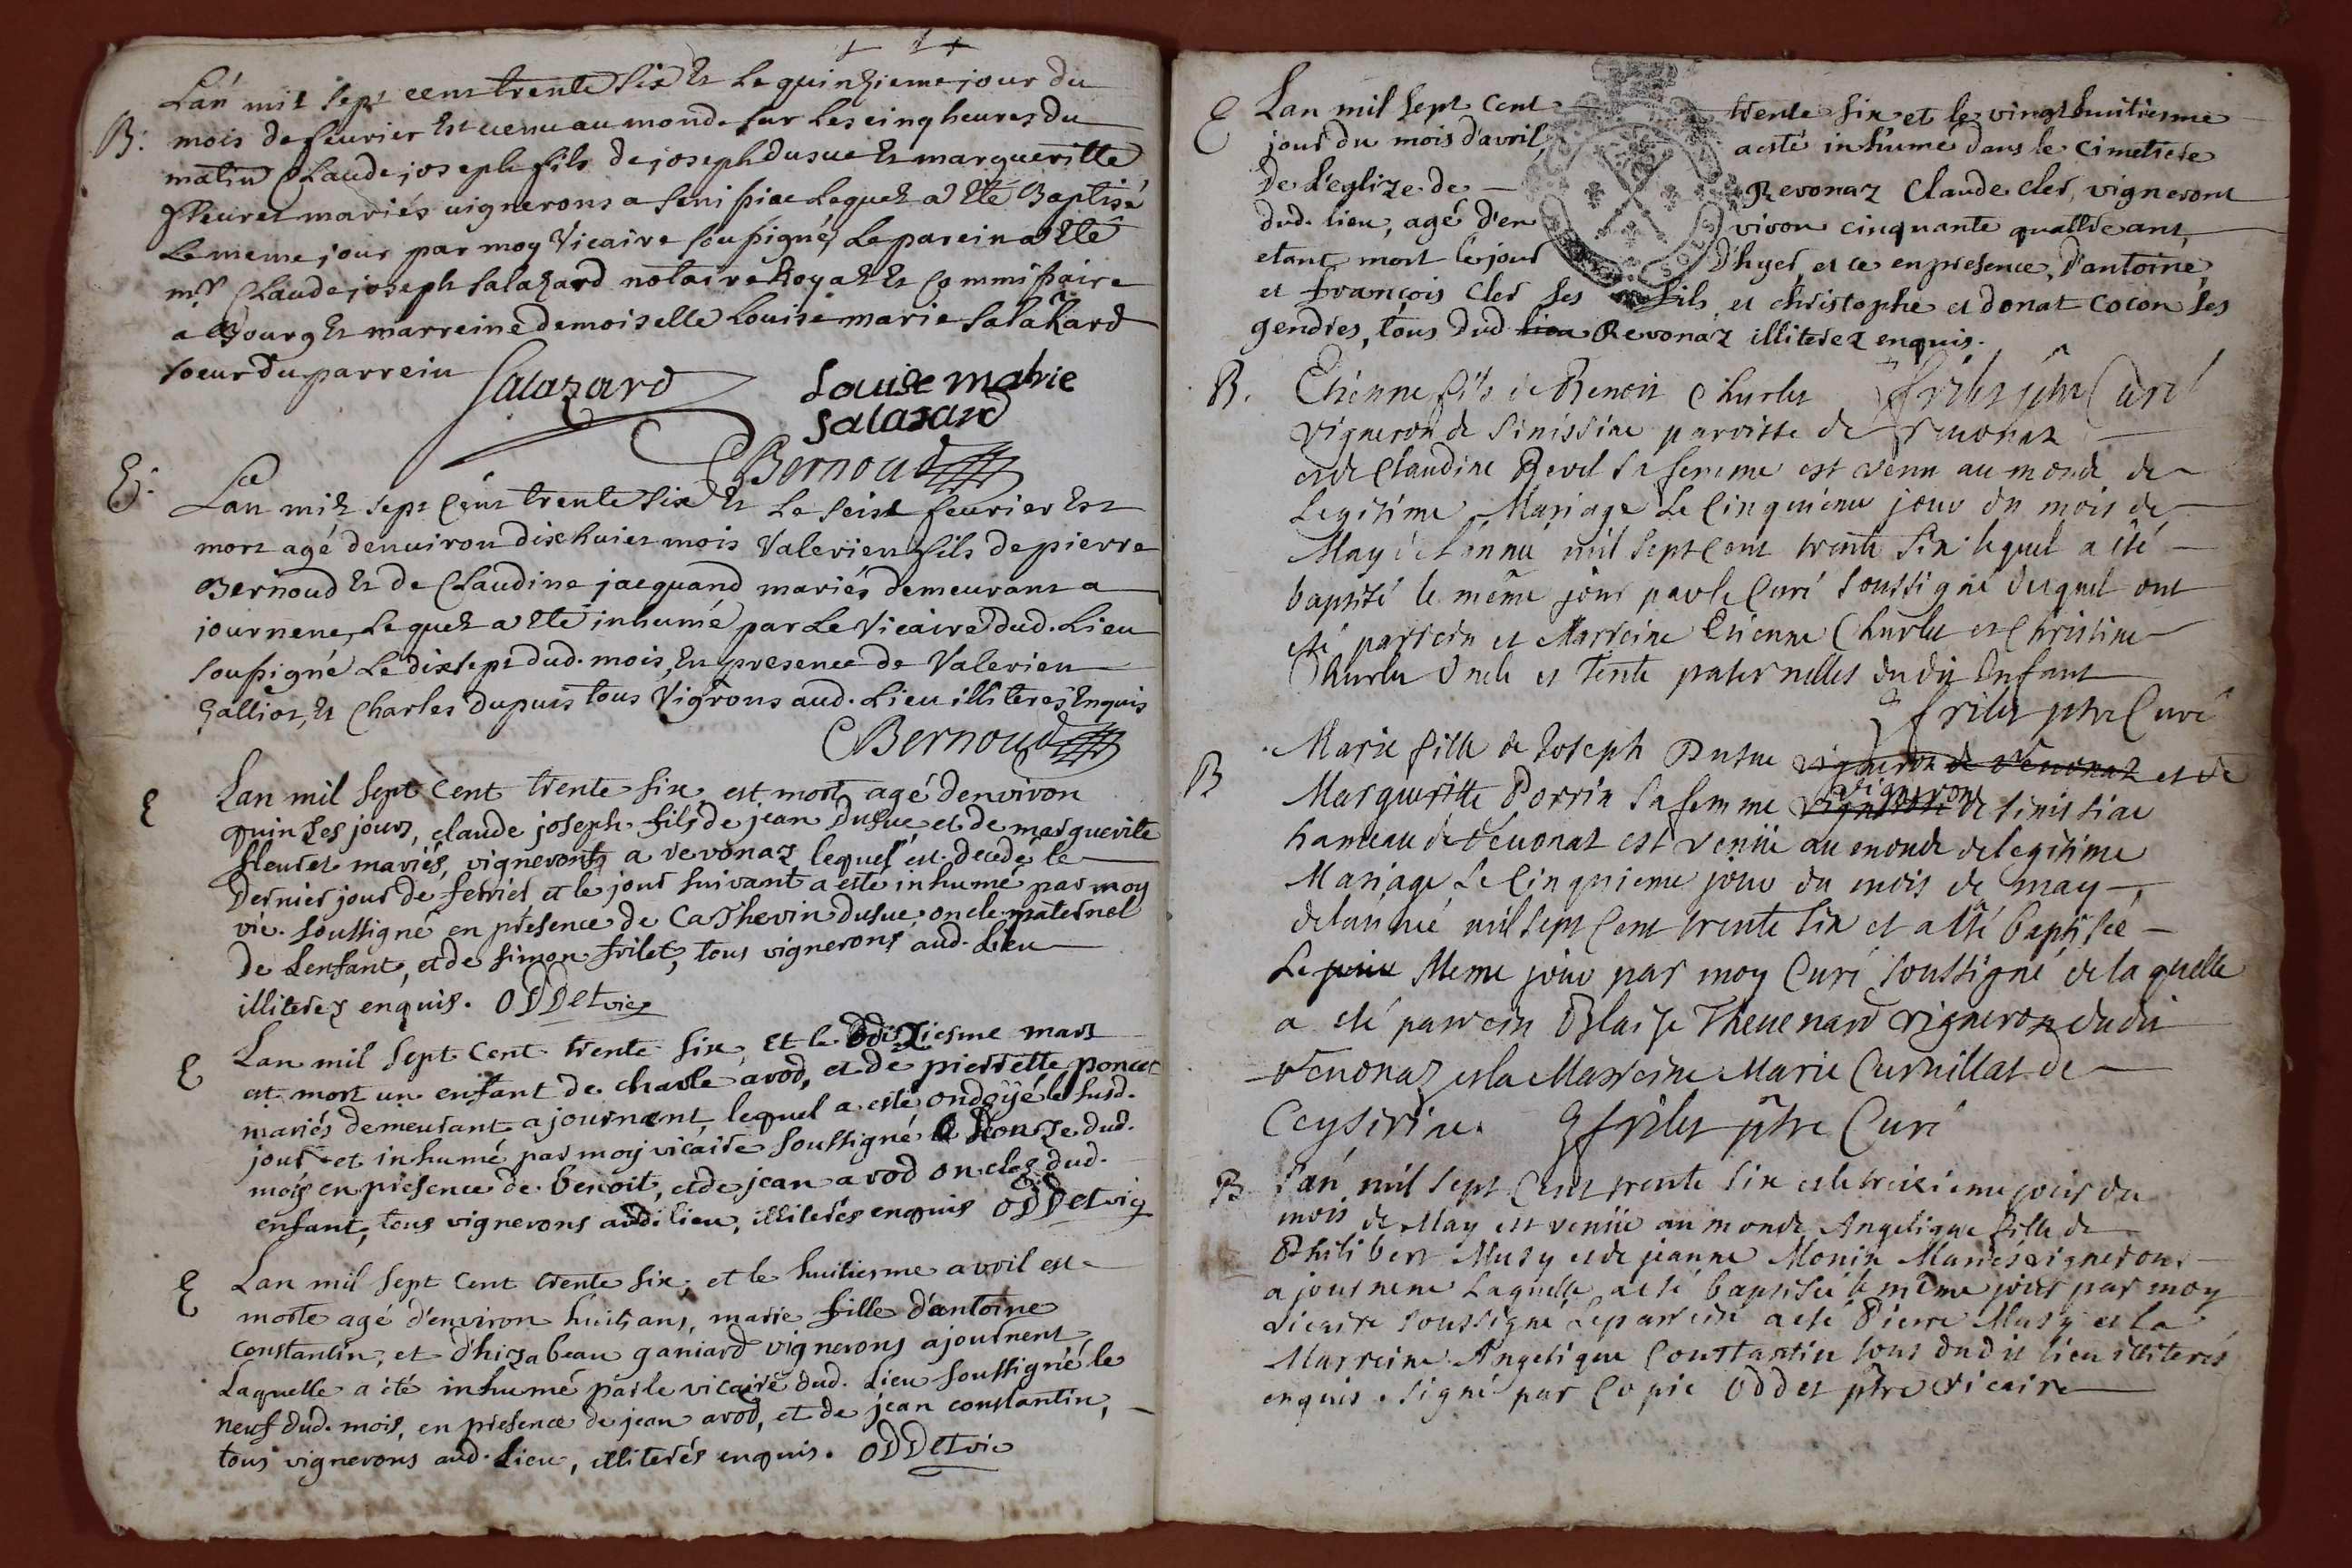 Lan mil sept cent trente six Et Le quinzieme jour du
B. mois de feuvrier Est venu au monde sur Les cinq heures du
matin Claude joseph fils de joseph dusue Et marguerille
fleuret mariés vignerons a senissiac Lequel a Eté Baptisé
Le meme jour par moy Vicaire soussigné, Le parein a Eté
mr Claude joseph salazard notaire Royal Et Commissaire
a Bourg Et marreine demoiselle Louise marie salazard
soeur du parrein
Salazard
Louise marie
salazard
Bernoud
E. Lan mil sept cent trente six Et Le seise feuvrier Est
mort agé denuiron dixhuiet mois Valerien fils de pierre
Bernoud Et de Claudine jacquand mariés demeurant a
journene, Lequel a Eté inhumé par Le Vicaire dud. Lieu
soussigné Le dixsept dud. mois, En presence de Valerien
galliot, Et Charles dupuis tous Vigrons aud. Lieu illiteres Enquis
Bernoud
E Lan mil sept cent trente six, est mort agé denviron
quinzes jours, claude joseph fils de jean dusue et de marguerite
fleuret mariés, vignerons a revonaz lequel est decedé le
dernier jour de fevrier, et le jour suivant a esté inhumé par moy
vic. soussigné en presence de Cathevin dusue oncle paternel
de Lenfant, et de simon frilet, tous vignerons aud. Lieu
illiterez enquis. ODDet vic
E Lan mil sept cent trente six, et le dixiesme mars
est mort un enfant de charle avod, et de pierrette poncet
mariés demeurant a journent, lequel a esté ondoyé le susd.
jour et inhumé par moy vicaire soussigné le onze dud.
mois en presence de benoit, et de jean avod oncles dud.
enfant, tous vignerons audi lieu, illiterés enquis ODDet vic
E Lan mil sept cent trente six, et le huitiesme avril est
morte agé d'environ huits ans, marie fille d'antoine
constantin, et d'hizabeau ganiard vignerons a journent
Laquelle a été inhumé par le vicaire dud. Lieu soussigné le
neuf dud. mois, en presence de jean avod, et de jean constantin,
tous vignerons aud. Lieu, illiterés enquis. ODDet vic
E Lan mil sept cent trente six et le vingt huitiesme
jour du mois d'avril, a esté inhumé dans le cimetiere
de l'eglize de Revonaz Claude cler, vigneront
dud. lieu, agé d'en viron cinquante quattre ans,
etant mort le jour d'hyer, et ce en presence, d'antoine,
et françois cler ses fils, et christophe et donat cocon ses
gendres, tous dud lieu Revonaz illiterez enquis.
frilet ptre Curé
B. Etienne fils de Benoit Churlet
vigneron de sinissiac parroisse de revonaz
et de Claudine Revel sa femme est venu au monde de
Legitime Mariage Le Cinquieme jour du mois de
May de Lannée mil sept cent trente six lequel a été
baptisé le même jour par le Curé soussigné duquel ont
eté parrein et Marreine Etienne Churlet et Christine
Churlet Oncle et Tente paternelles du dit Enfant
frilet ptre Curé
B Marie fille de Joseph Dusue vigneron de revonaz et de
Marguerite Porrin sa femme vigneron vignerons de sinissiac
hameau de revonaz est venüe au monde de legitime
Mariage Le Cinquieme jour du mois de may
de lannée mil sept Cent trente six et a été baptisée
Le Meme jour par moy Curé soussigné de laquelle
a eté parrein Blaise Thevenard vigneron dudit
revonaz et la Marreine Marie Curnillat de
Ceyseriac. frilet ptre Curé
B L'an mil sept Cent trente six et le treizieme jour du
mois de May est venüe au monde Angelique fille de
Philibert Musy et de jeanne Monin Mariés vignerons
a journene Laquelle a eté baptisée le même jour par moy
vicaire soussigné Le parrein a eté Pierre Musy et la
Marreine Angelique Constantin tous dudit lieu illiteres
enquis. signé par Copie Oddet ptre vicaire